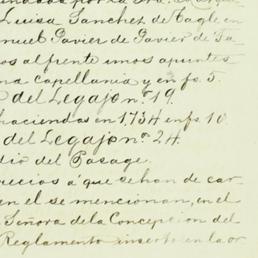 Luisa Sanchez de Tagle en
nuel Javier de Javier de Ta
os al frente unos apuntes
na capellania y en fs. 3.
del Legajo n.º 19.
haciendas en 1734 en fs 10.
del Legajo n.º 24.
dio del Pasage.
recios á que se han de car
en el se mencionan, en el
Señora de la Concepcion del
Reglamento inserto en la or